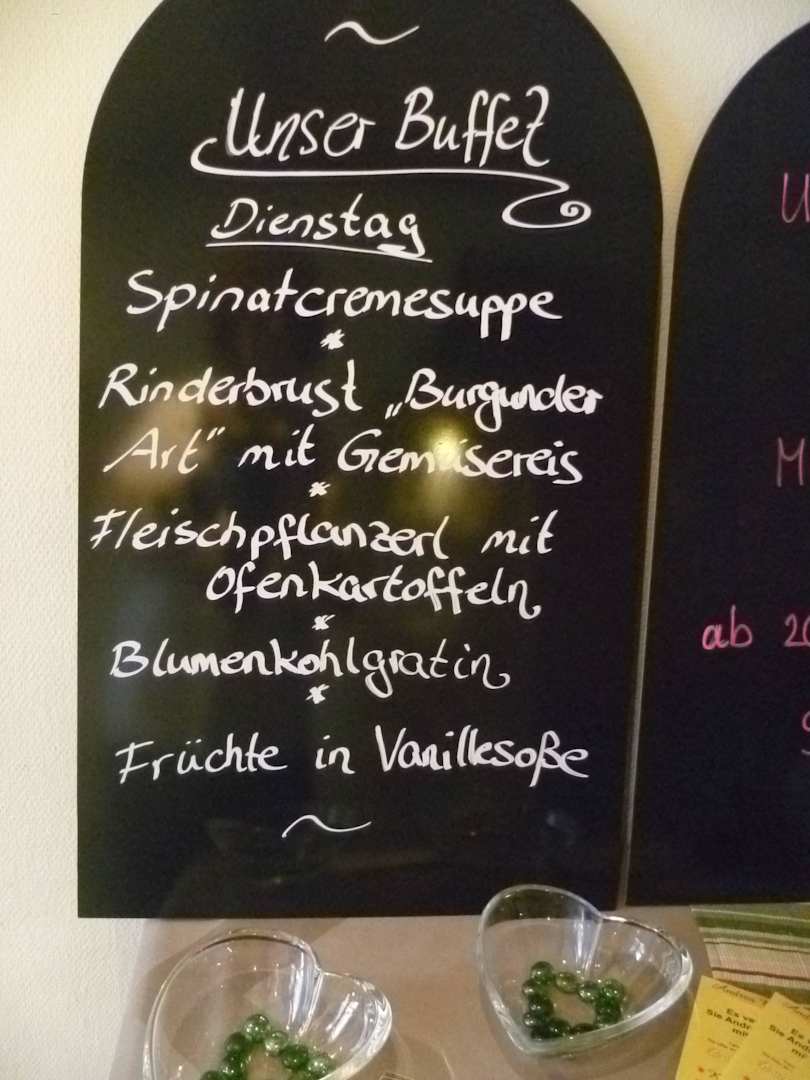 ~
Unser Buffet
Dienstag
Spinatcremesuppe
*
Rinderbrust „Burgunder
Art" mit Gemüsereis
*
Fleischpflanzerl mit
Ofenkartoffeln
*
Blumenkohlgratin
*
Früchte in Vanillesoße
~
U
M
ab 20
S
Es ve
Sie Andr
mi